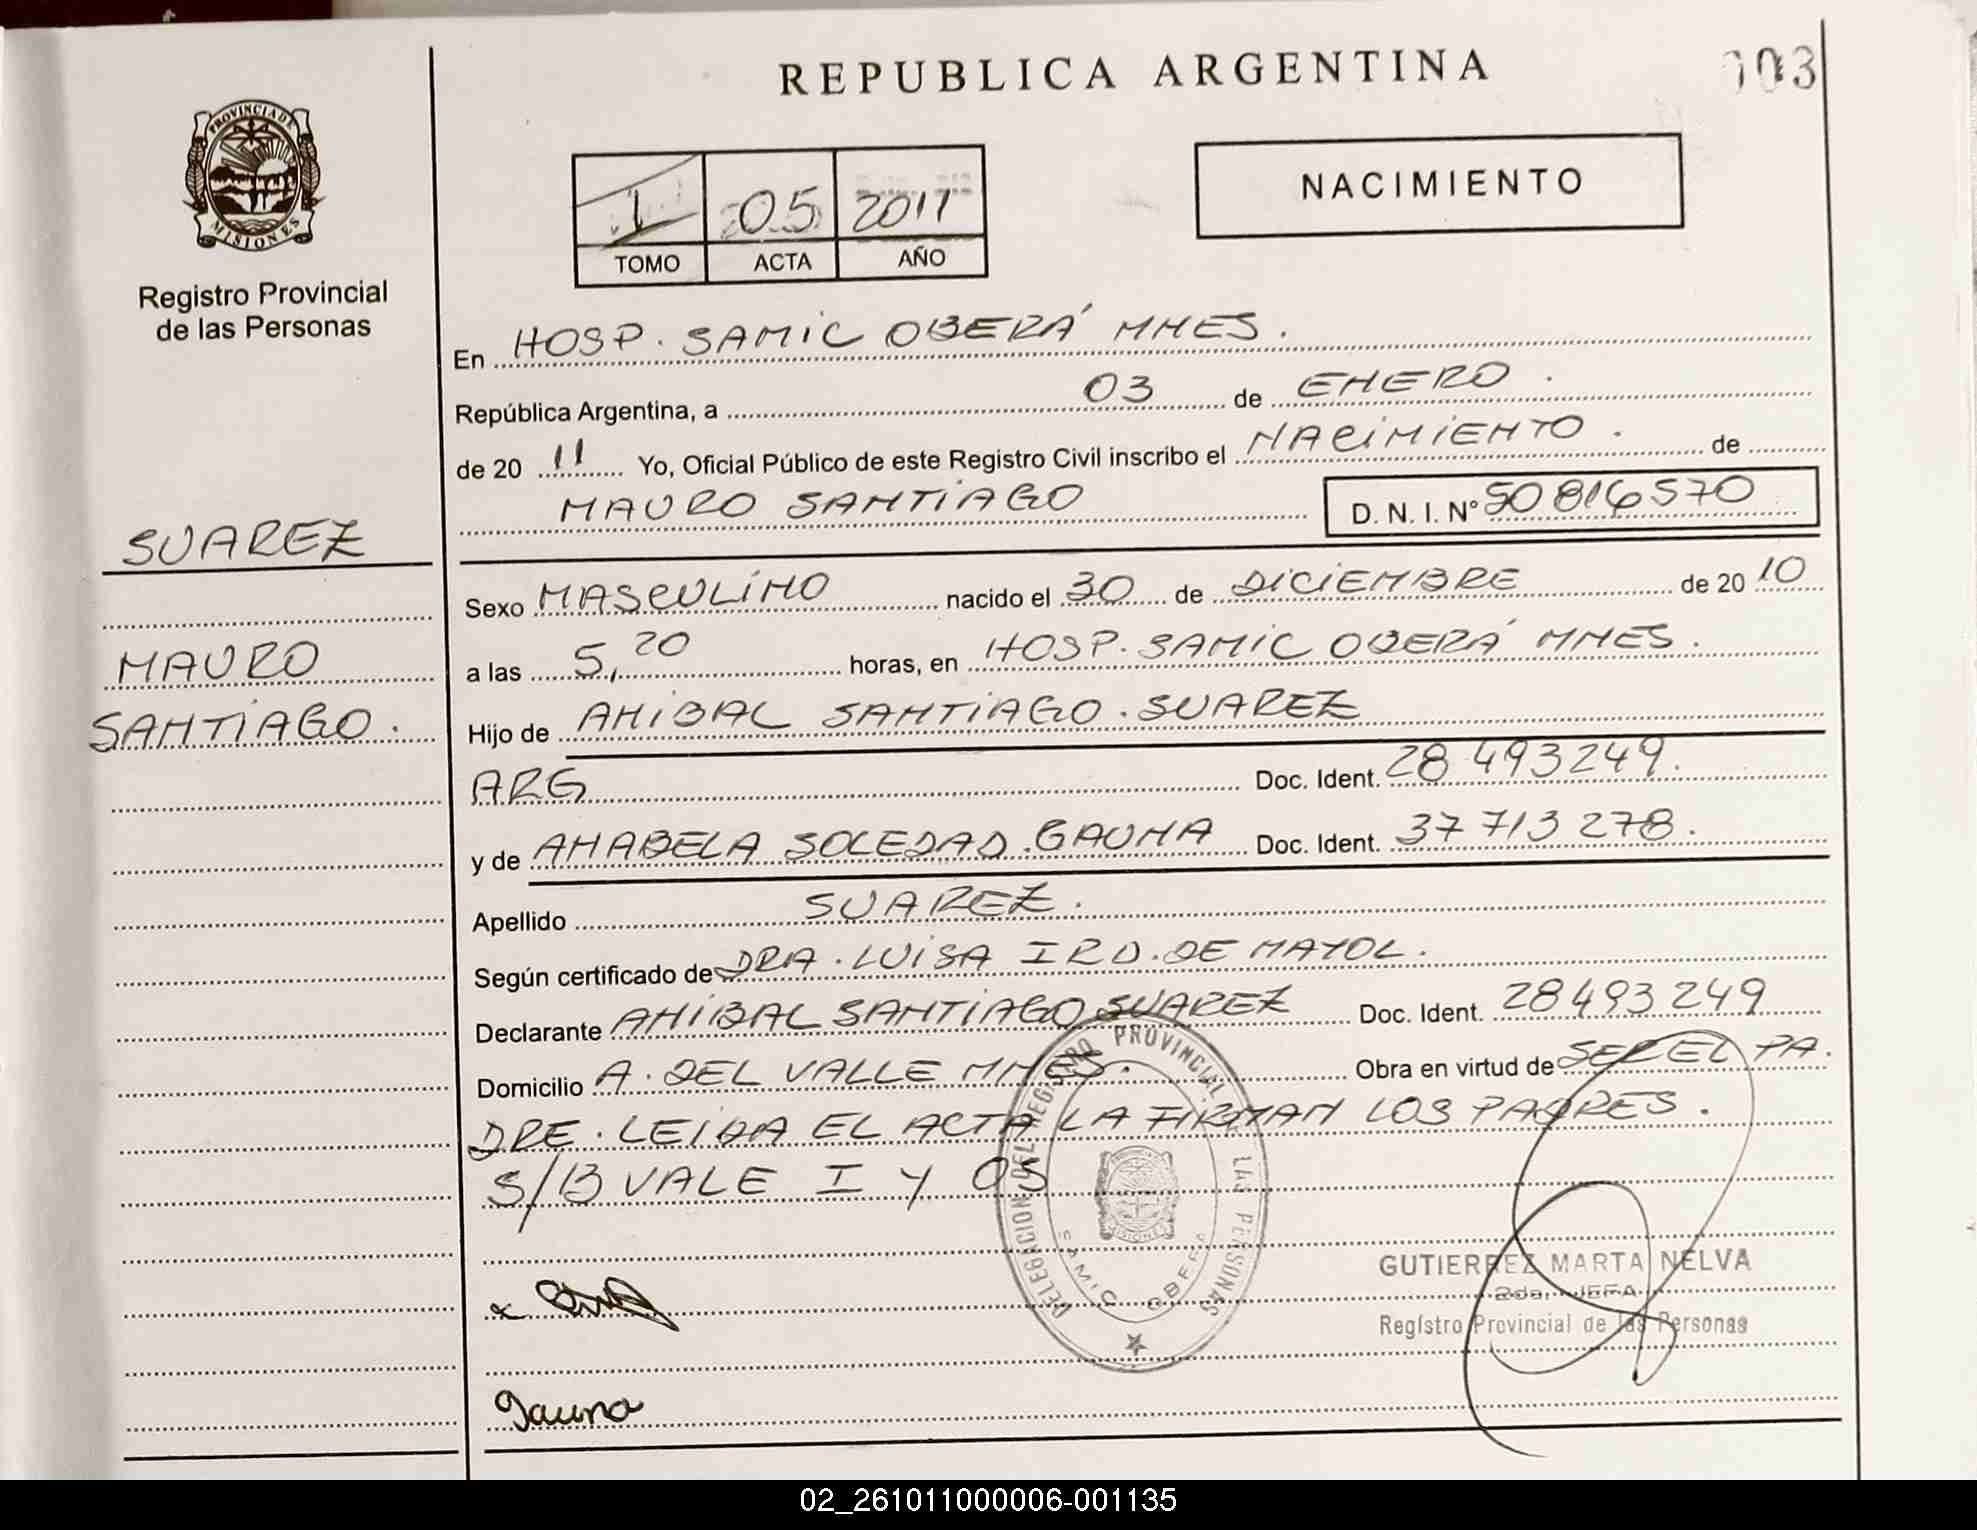 REPUBLICA ARGENTINA
103
PROVINCIA DE
MISIONES
Registro Provincial
de las Personas
I 05 2011
TOMO ACTA AÑO
NACIMIENTO
En HOSP. SAMIC OBERÁ MNES.
República Argentina, a 03 de ENERO.
de 20 11 Yo, Oficial Público de este Registro Civil inscribo el NACIMIENTO. de
MAURO SANTIAGO D. N. I. Nº 50 816 570
SUAREZ
MAURO
SANTIAGO.
Sexo MASCULINO nacido el 30 de DICIEMBRE de 20 10
a las 5,20 horas, en HOSP. SAMIC OBERÁ MNES.
Hijo de ANIBAL SANTIAGO. SUAREZ
ARG Doc. Ident. 28 493249.
y de ANABELA SOLEDAD. GAUNA Doc. Ident. 37 713 278.
Apellido SUAREZ.
Según certificado de DRA. LUISA IRD. DE MAYOL.
Declarante ANIBAL SANTIAGO SUAREZ Doc. Ident. 28493249
Domicilio A. DEL VALLE MNES. Obra en virtud de SER EL PA.
DRE. LEIDA EL ACTA LA FIRMAN LOS PADRES.
S/B VALE I Y 05
DELEGACION DEL REGISTRO PROVINCIAL LAS PERSONAS
SAMIC OBERA
MISIONES
GUTIERREZ MARTA NELVA
2da. JEFA
Registro Provincial de las Personas
Gauna
02_261011000006-001135